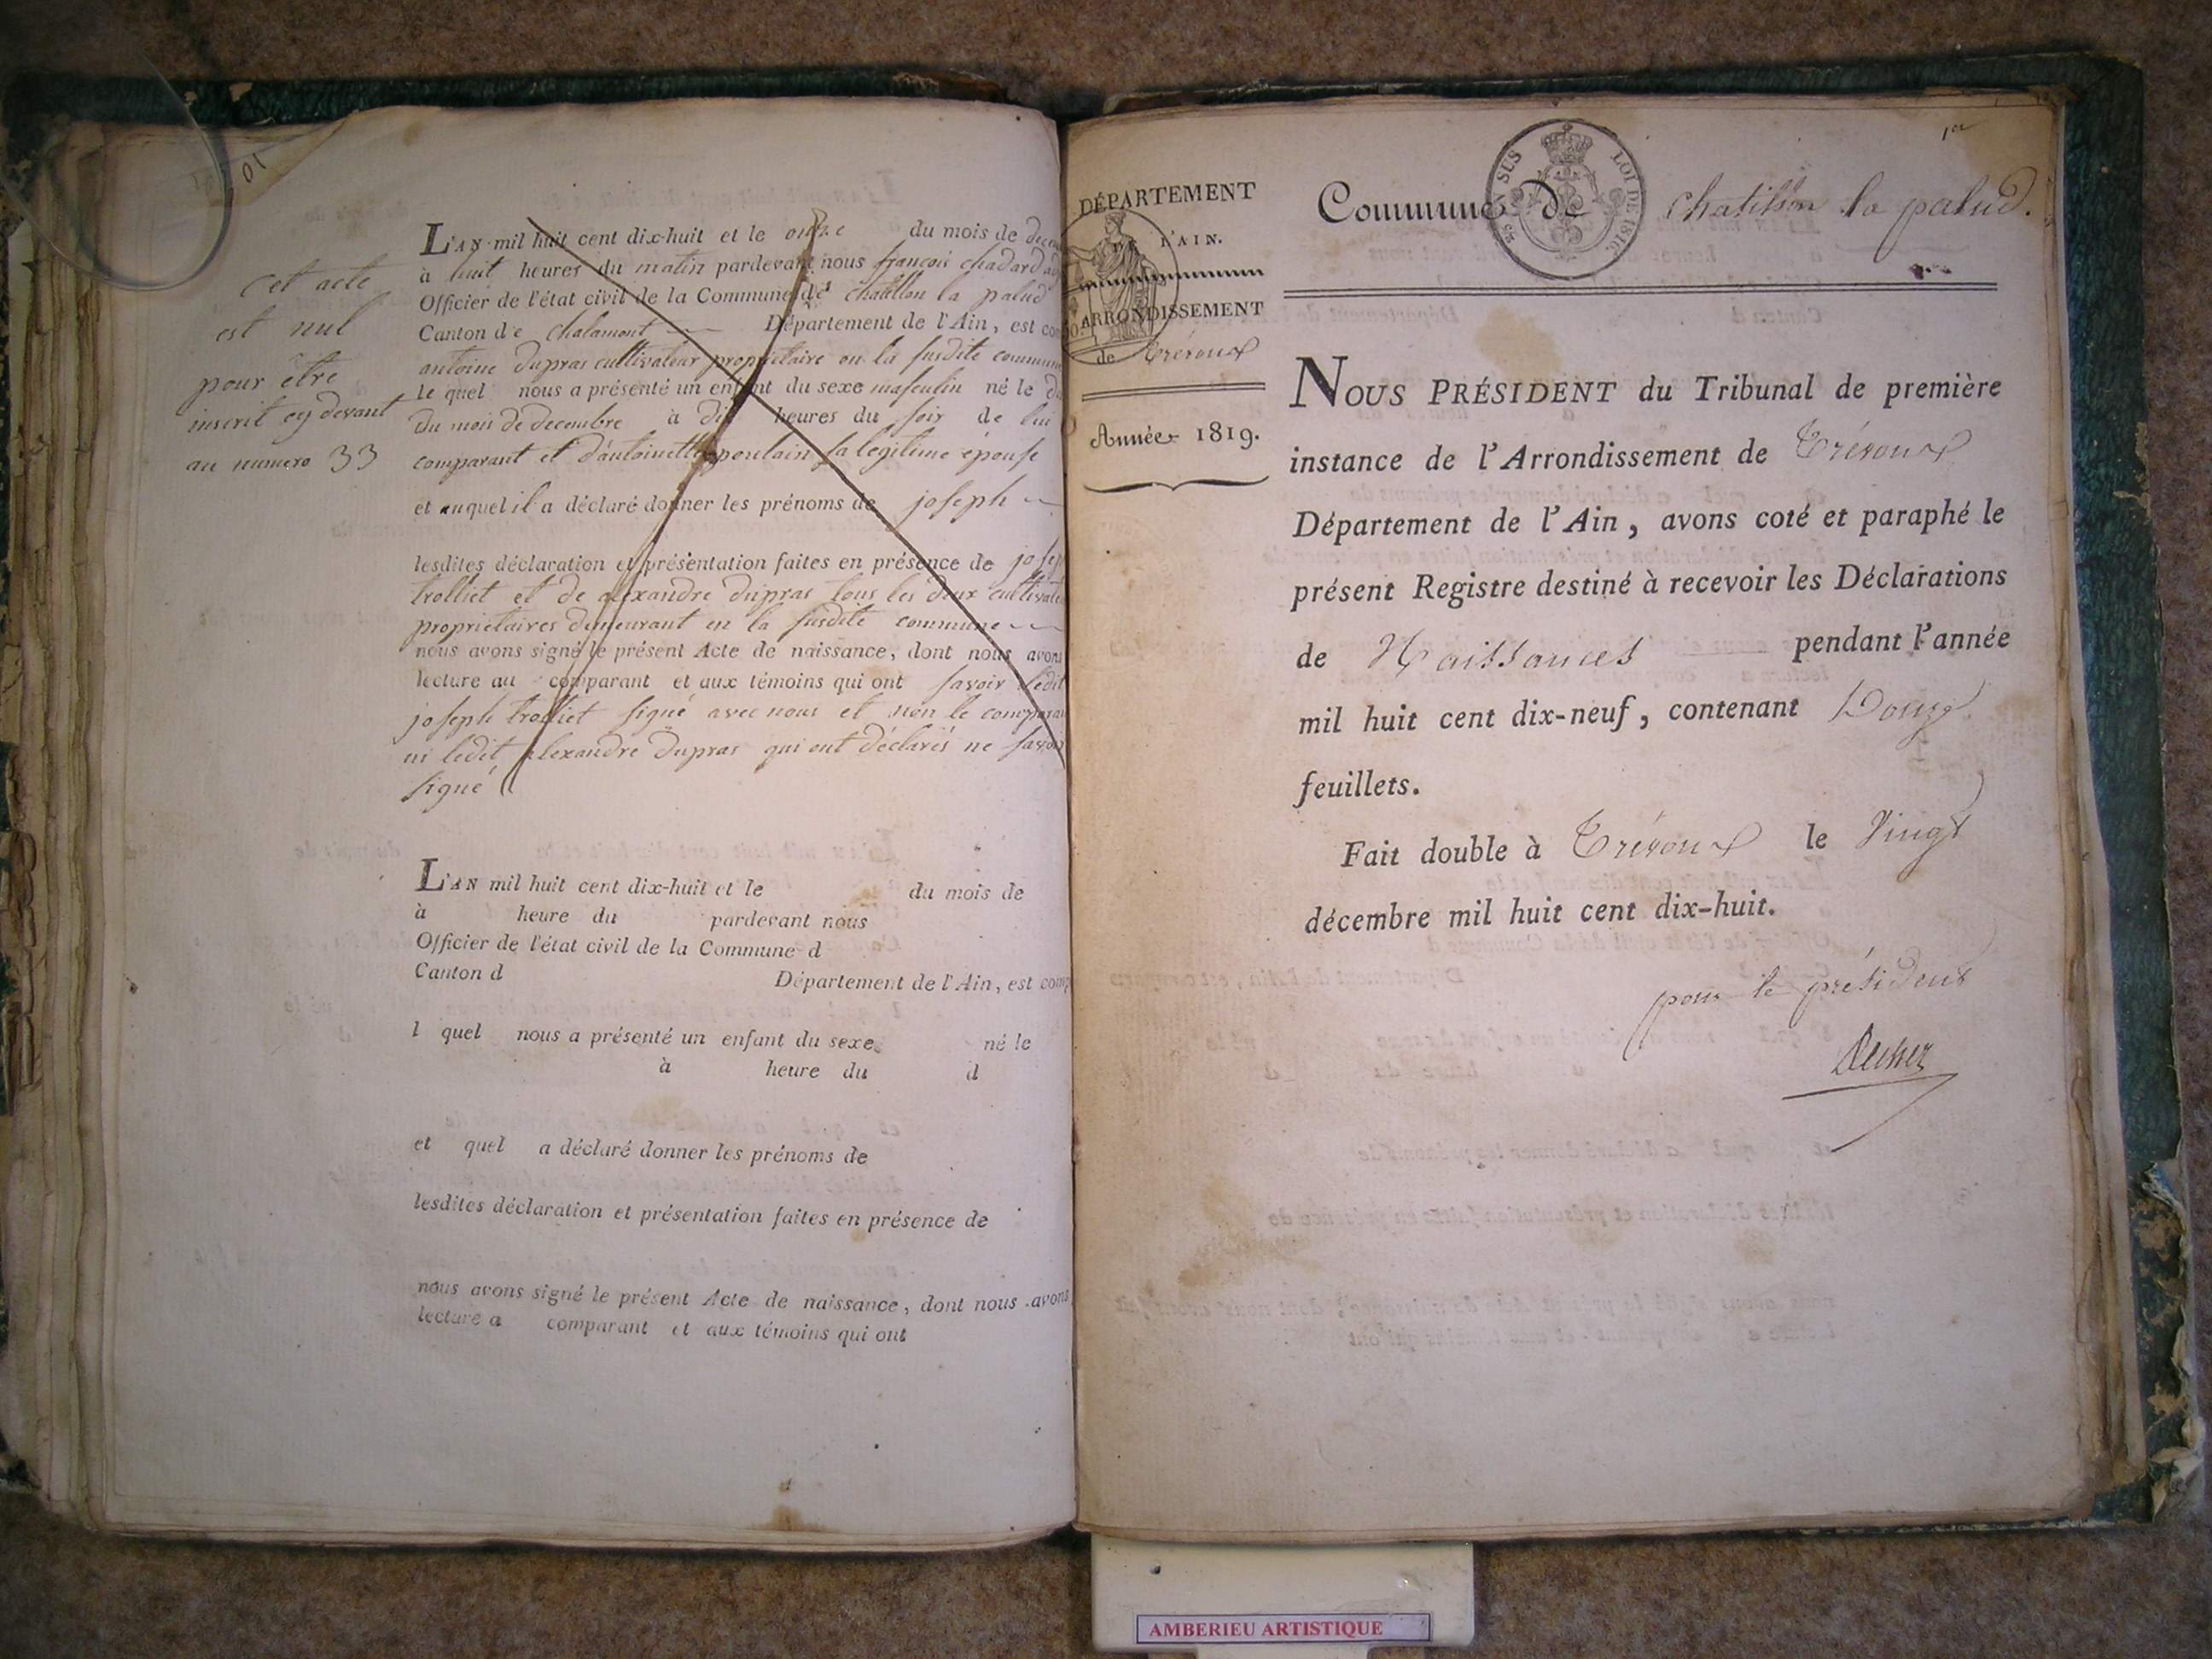 10
cet acte
est nul
pour être
inscrit cy devant
au numero 33
L'AN mil huit cent dix-huit et le onze du mois de
à huit heures du matin pardevant nous françois chadard
Officier de l'état civil de la Commune de chatillon la palud
Canton de chalamont Département de l'Ain, est
antoine dupras cultivateur propriétaire en la susdite commune
le quel nous a présenté un enfant du sexe masculin né le
du mois de decembre à dix heures du soir de lui
comparant et d'antoinette poulain sa legitime épouse
et auquel il a déclaré donner les prénoms de joseph
lesdites déclaration et présentation faites en présence de
trolliet et de alexandre dupras tous les deux
proprietaires demeurant en la susdite commune
nous avons signé le présent Acte de naissance, dont nous avons
lecture au comparant et aux témoins qui ont savoir ledit
joseph trolliet signé avec nous et non le
ni ledit alexandre dupras qui ont déclarés ne savoir
signé
L'AN mil huit cent dix-huit et le du mois de
à heure du pardevant nous
Officier de l'état civil de la Commune d
Canton d Département de l'Ain, est
l quel nous a présenté un enfant du sexe né le
à heure du d
et quel a déclaré donner les prénoms de
lesdites déclaration et présentation faites en présence de
nous avons signé le présent Acte de naissance, dont nous avons
lecture a comparant et aux témoins qui ont
1er
DÉPARTEMENT
DE L'AIN.
ARRONDISSEMENT
de Trévoux
Année 1819.
SUS LOI DE 1816.
Commune de chatillon la palud.
NOUS PRÉSIDENT du Tribunal de première
instance de l'Arrondissement de Trévoux
Département de l'Ain, avons coté et paraphé le
présent Registre destiné à recevoir les Déclarations
de Naissances pendant l'année
mil huit cent dix-neuf, contenant Douze
feuillets.
Fait double à Trévoux le Vingt
décembre mil huit cent dix-huit.
pour le président
AMBERIEU ARTISTIQUE